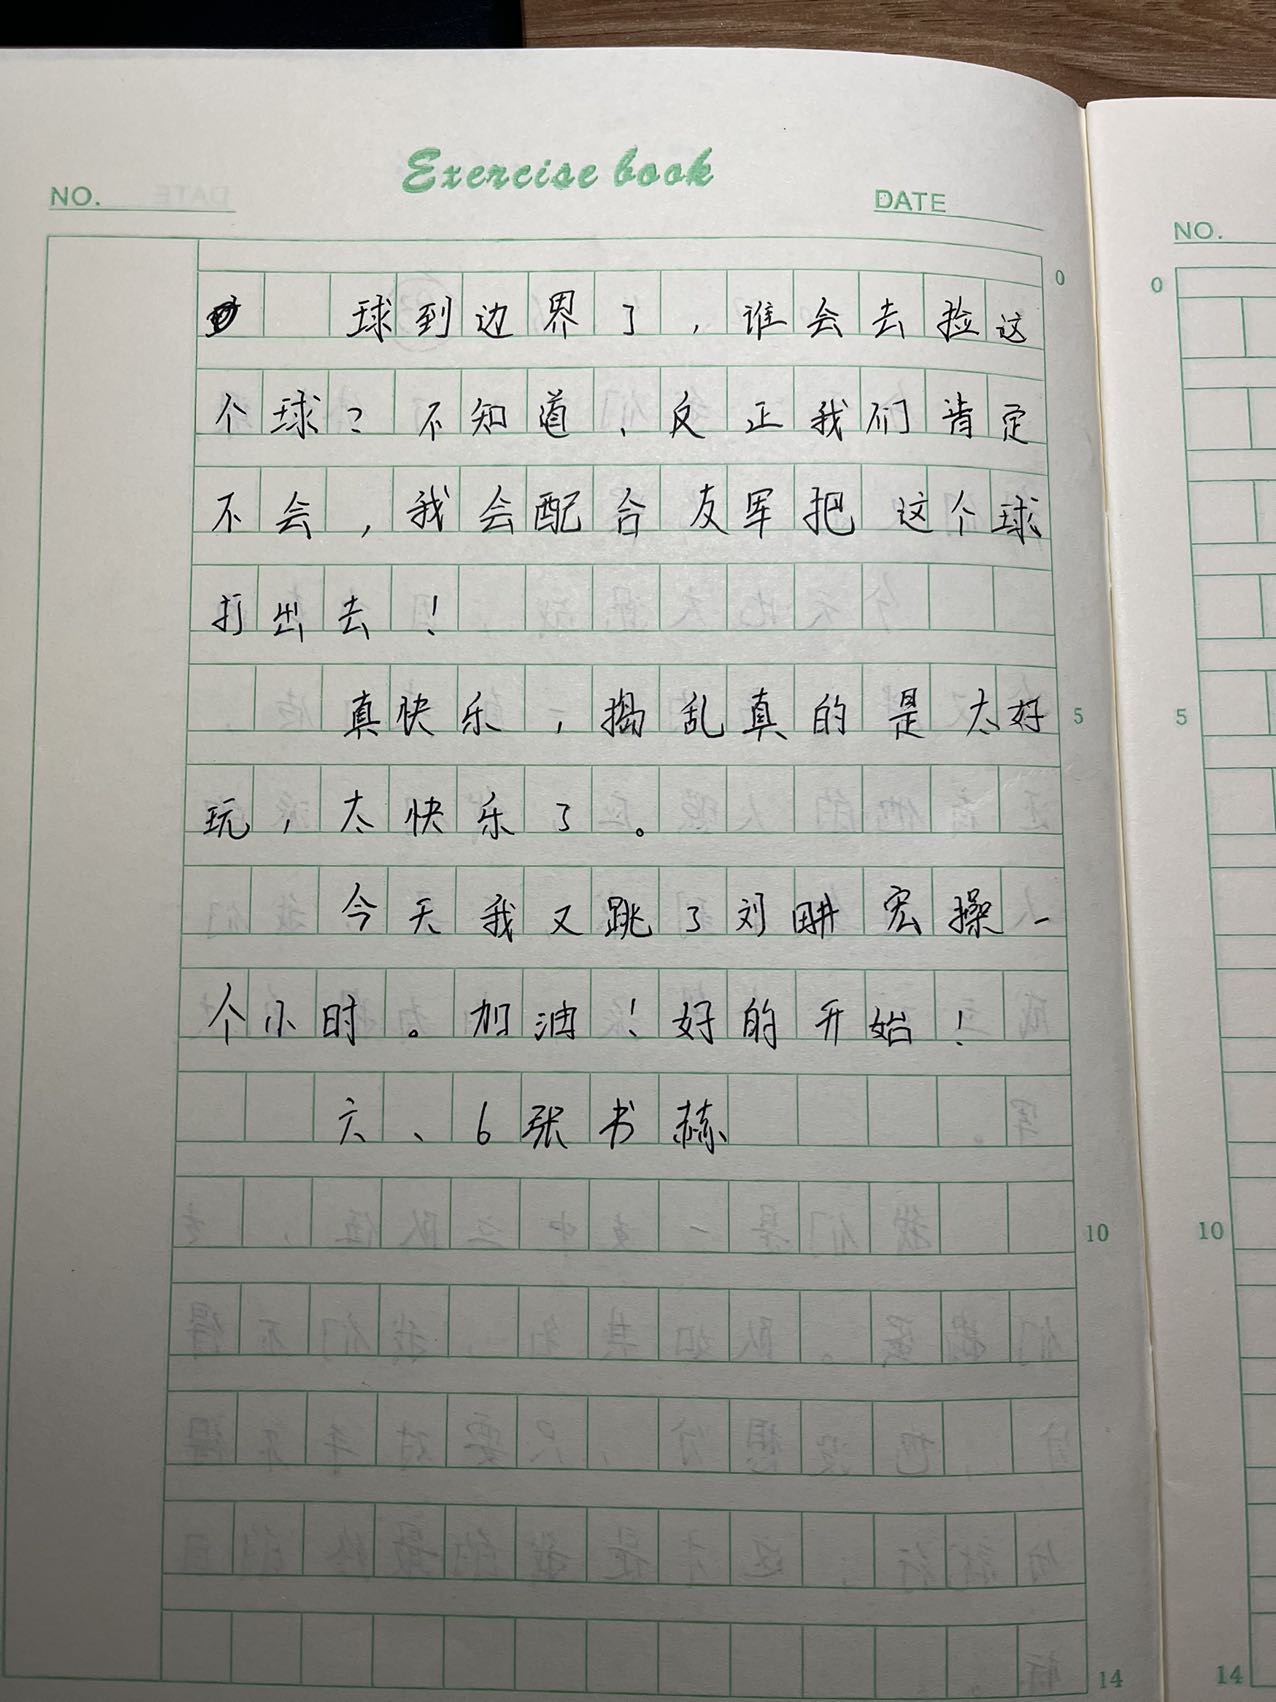 Exercise book
NO. DATE
NO.
球到边界了,谁会去捡这
个球?不知道、反正我们肯定
不会,我会配合友军把这个球
打出去!
真快乐,捣乱真的是太好
玩,太快乐了。
今天我又跳了刘畊宏操一
个小时。加油!好的开始!
六、6张书赫
0
5
10
14
0
5
10
14